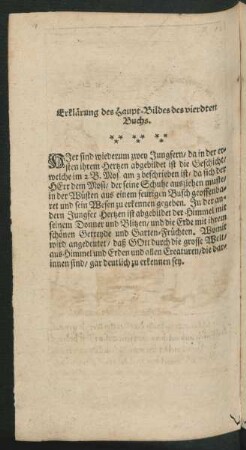 Erklärung des Haupt-Bildes des vierdten
Buchs.
HIer sind wiederum zwey Jungfern/ da in der er-
sten ihrem Hertzen abgebildet ist die Geschicht/
welche im 2 B. Mos. am 3 beschrieben ist/ da sich der
HErr dem Mosi/ der seine Schuhe ausziehen muste/
in der Wüsten aus einem feurigen Busch geoffenba-
ret und sein Wesen zu erkennen gegeben. In der an-
dern Jungfer Hertzen ist abgebildet der Himmel mit
seinem Donner und Blitzen/ und die Erde mit ihren
schönen Getreyde und Garten-Früchten. Womit
wird angedeutet/ daß GOtt durch die grosse Welt/
aus Himmel und Erden und allen Creaturen/ die dar-
innen sind/ gar deutlich zu erkennen sey.